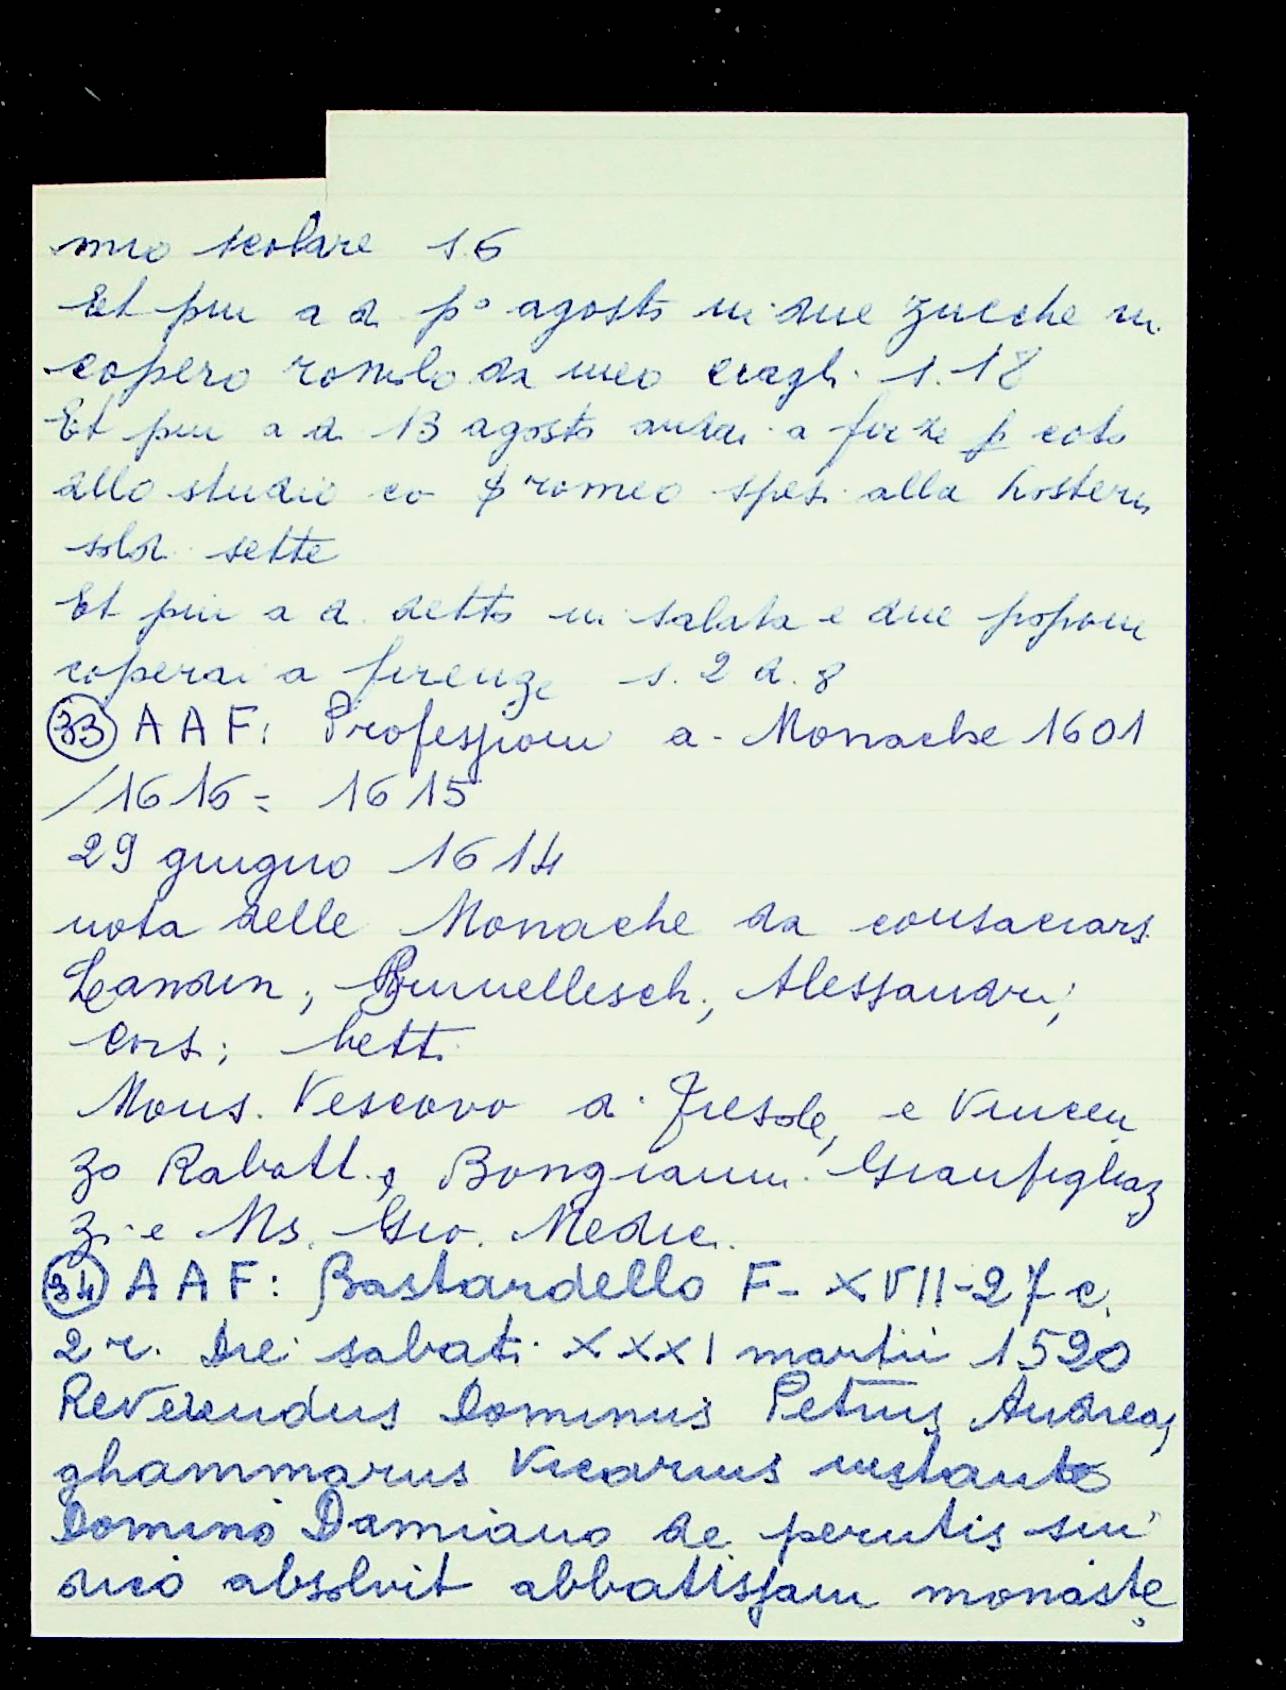 mio scolare s. 6
Et piu a di p° agosto in due zucche in
copero romolo da meo cragli s. 18
Et piu a di 13 agosto andai a firze p coto
dllo studio co romeo spesi alla hosteria
soldi sette
Et piu a di detto in salata e due poponi
coperai a firenze s. 2 d. 8
33 A A F: Professioni di Monache 1601
/1616 = 1615
29 giugno 1614
nota delle Monache da consacrarsi
Landini, Brunelleschi, Alessandri,
Corsi; betti
Mons. Vescovo di Fiesole, e Vincen
zo Rabatti, Bongianni Gianfigliaz
zi e Ms. Gio. Medici.
34 A A F: Bastardello F - XVII - 27 c.
2 r. Die sabati XXXI martii 1590
Reverendus Dominus Petrus Andreas
ghammarus Vicarius instante
Domino Damiano de perutis sin
dico absolvit abbatissam monaste